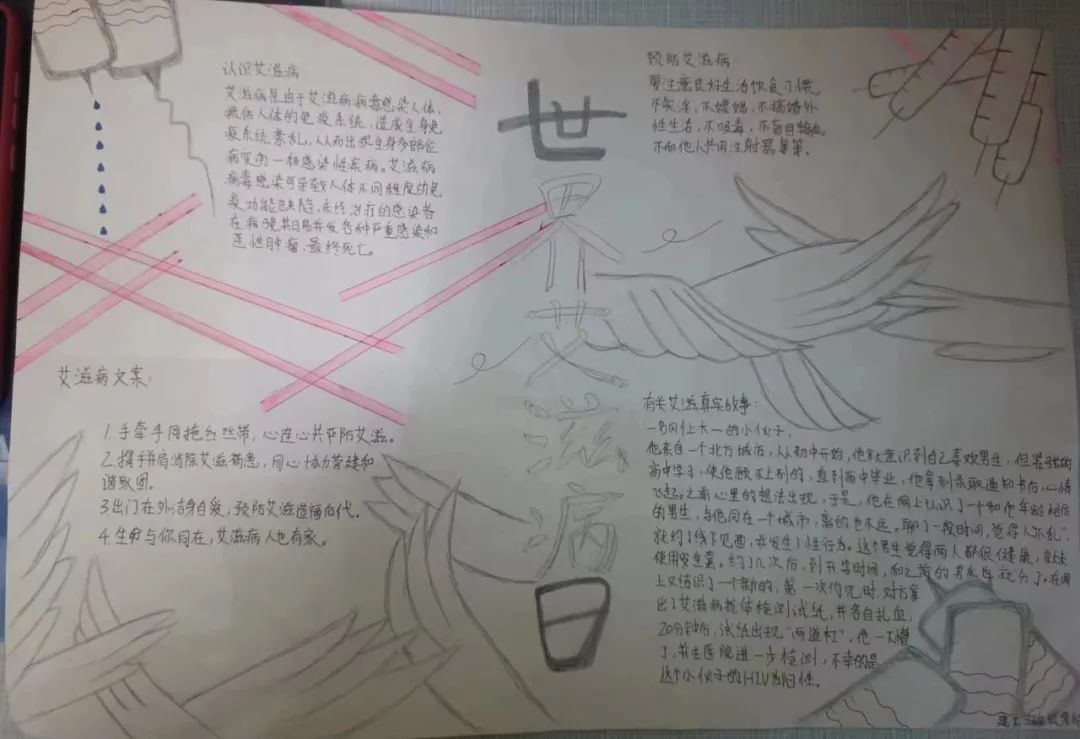 认识艾滋病
艾滋病是由于艾滋病病毒感染人体,
人体的免疫系统,造成自身免
疫系统紊乱,从而出现全身多部位
病变的一种感染性疾病。艾滋病
病毒感染可导致人体不同程度的免
疫功能缺陷,未经治疗的感染者
在病晚期易并发各种严重感染和
恶性肿瘤,最终死亡。
预防艾滋病
要注意良好生活饮食习惯
不卖淫,不嫖娼,不搞婚外
性生活,不吸毒,不盲目输血,
不和他人共用注射器等等。
世界艾滋病日
艾滋病文案:
1.手牵手同拖红丝带,心连心共平防艾滋。
2.携手拼肩消除艾滋祸患,同心协力营建和
谐家园。
3.出门在外洁身自爱,预防艾滋造福后代。
4.生命与你同在,艾滋病人也有家。
有关艾滋真实故事:
一名刚上大一的小伙子,
他来自一个北方城市,从初中开始,他就意识到自己喜欢男生,但紧张的
高中学习,使他顾不上别的,直到高中毕业,他拿到录取通知书后,心情
飞起。之前心里的想法出现,于是,他在网上认识了一个和他年龄相仿
的男生,与他同在一个城市,离的也不远。聊了一段时间,觉得人“不乱”,
就约了线下见面,并发生了性行为。这个男生觉得两人都很健康,
使用安全套。约了几次后,到开学时间,和之前的男友断就分了。在网
上又结识了一个新的,第一次约见时,对方拿
出了艾滋病抗体检测试纸,并各自扎血,
20分钟后,试纸出现“两道杠”,他一下懵
了,并去医院进一步检测,不幸的是
这个小伙子的HIV为阳性。